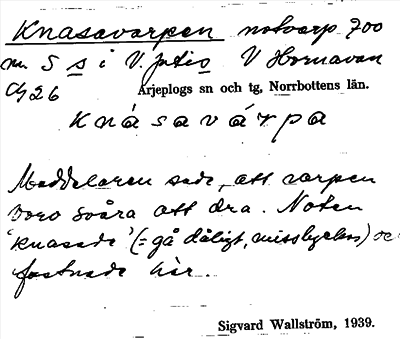 Knasavarpen notvarp 700
m S s i V. V Hornavan
26 Arjeplogs sn och tg, Norrbottens län.
k n á s a v á r p a
Meddelaren sade, att varpen
voro svåra att dra. Noten
'knasade' (= gå dåligt, misslyckas) oc
fastnade här.
Sigvard Wallström, 1939.